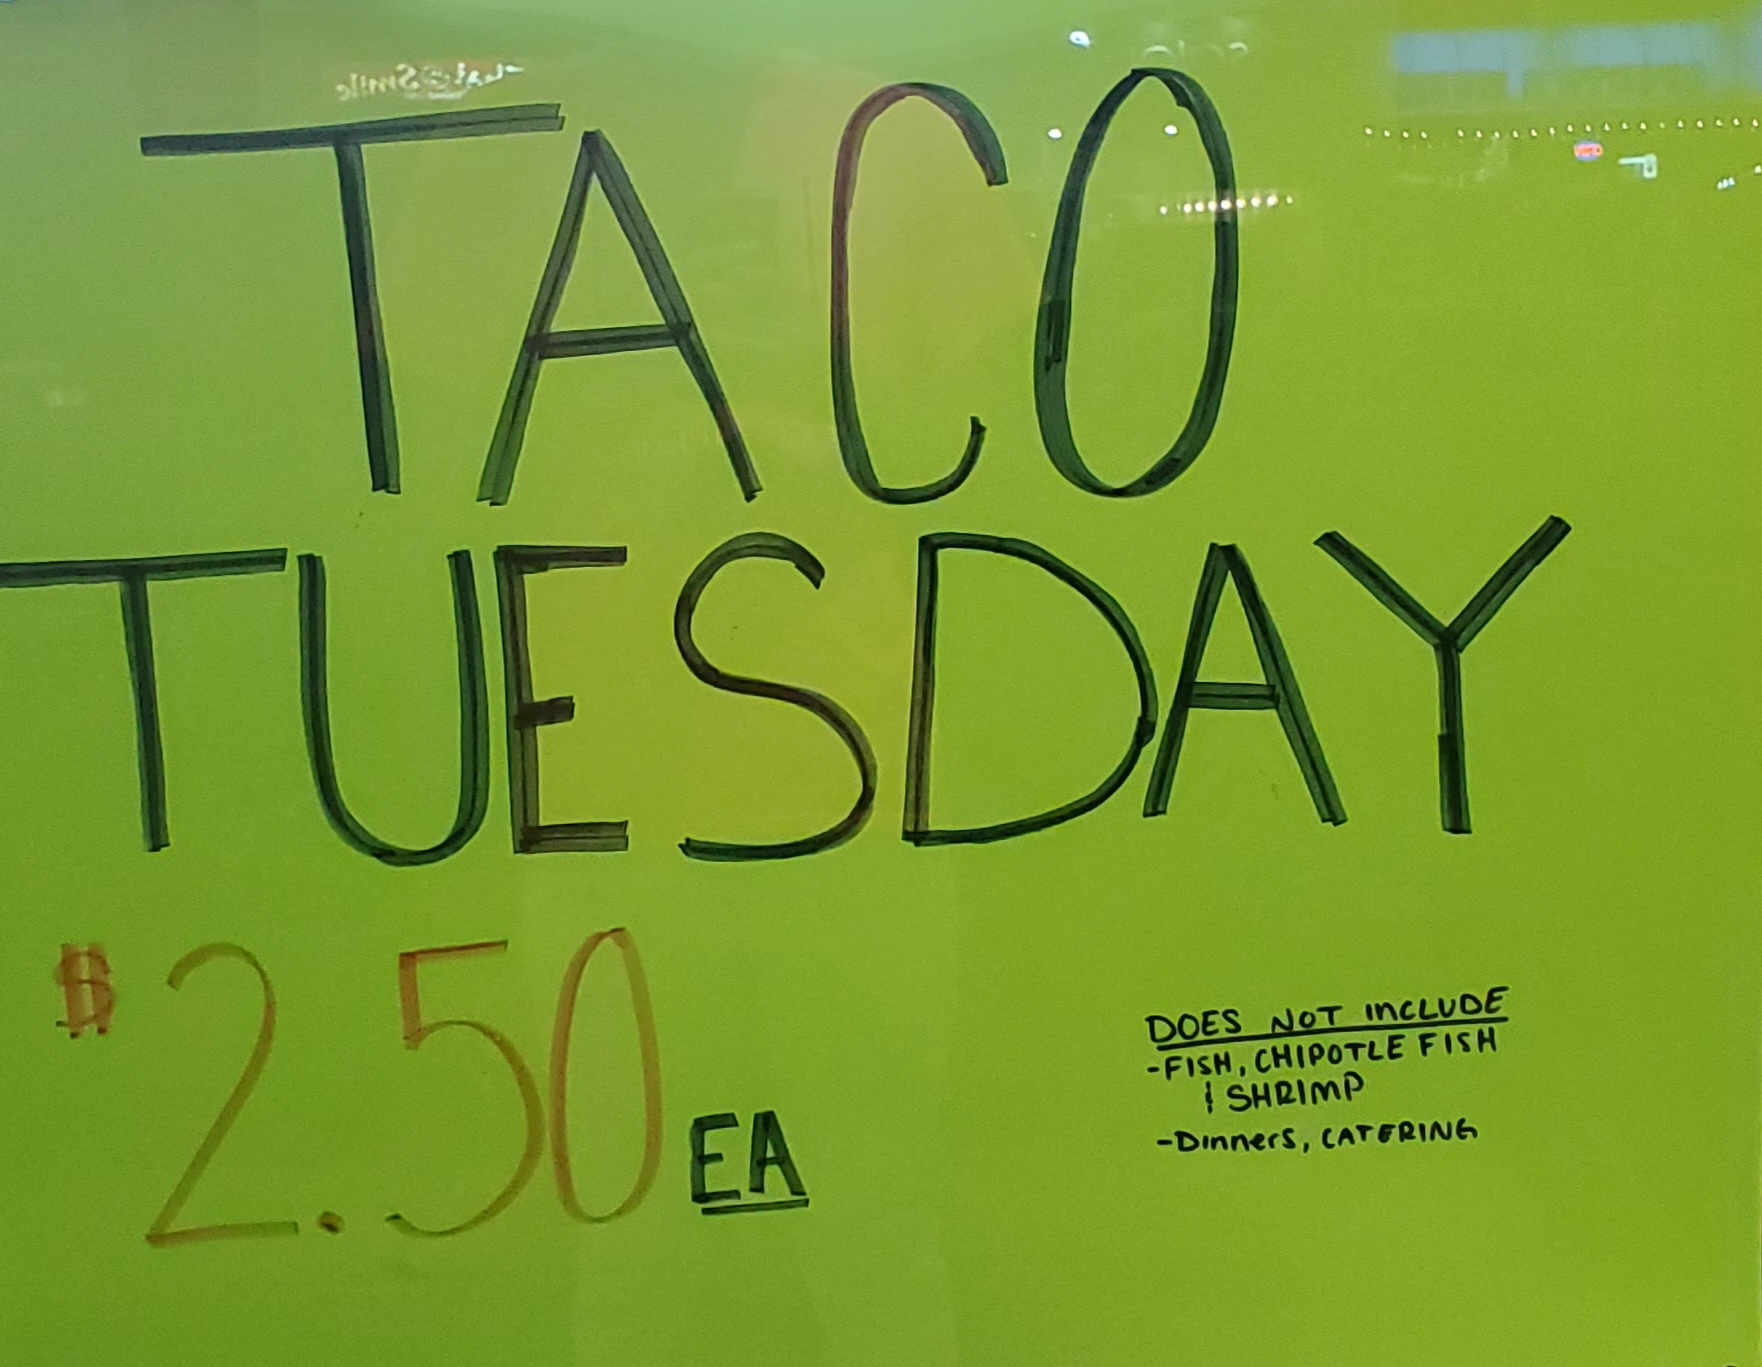 TACO
TUESDAY
$2.50 EA
DOES NOT INCLUDE
-FISH, CHIPOTLE FISH
& SHRIMP
-Dinners, CATERING